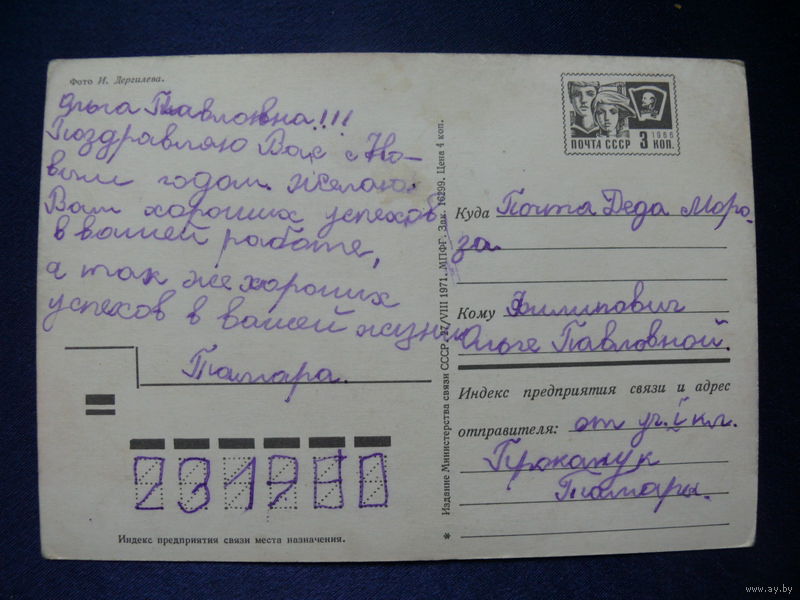 Фото И. Дергилева.
Ольга Павловна!!!
Поздравляю Вас с Но-
вым годом. Желаю
Вам хороших успехов
в вашей работе,
а так же хороших
успехов в вашей жизни
Тамара.
231710
Индекс предприятия связи места назначения.
* Издание Министерства связи СССР. 27/VIII 1971. МПФГ. Зак. 16299. Цена 4 коп.
1966
ПОЧТА СССР 3 КОП.
Куда Почта Деда Моро-
за.
Кому Филипович
Ольге Павловной.
Индекс предприятия связи и адрес
отправителя: от уч. I кл.
Прокапук
Тамары.
www.ay.by